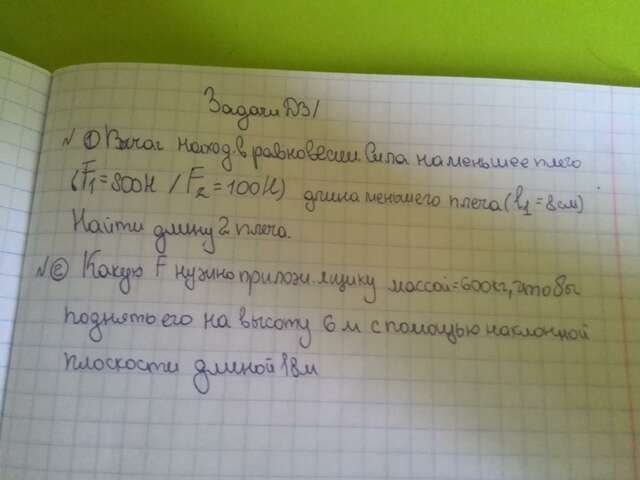 Задачи ДЗ/
№ ① Рычаг наход. в равновесии. Сила на меньшее плечо
(F₁=800Н / F₂=100Н) длина меньшего плеча (l₁=8см)
Найти длину 2 плеча.
№ ② Какую F нужно прилож. ящику массой=600кг, чтобы
поднять его на высоту 6 м с помощью наклонной
плоскости длиной 18м